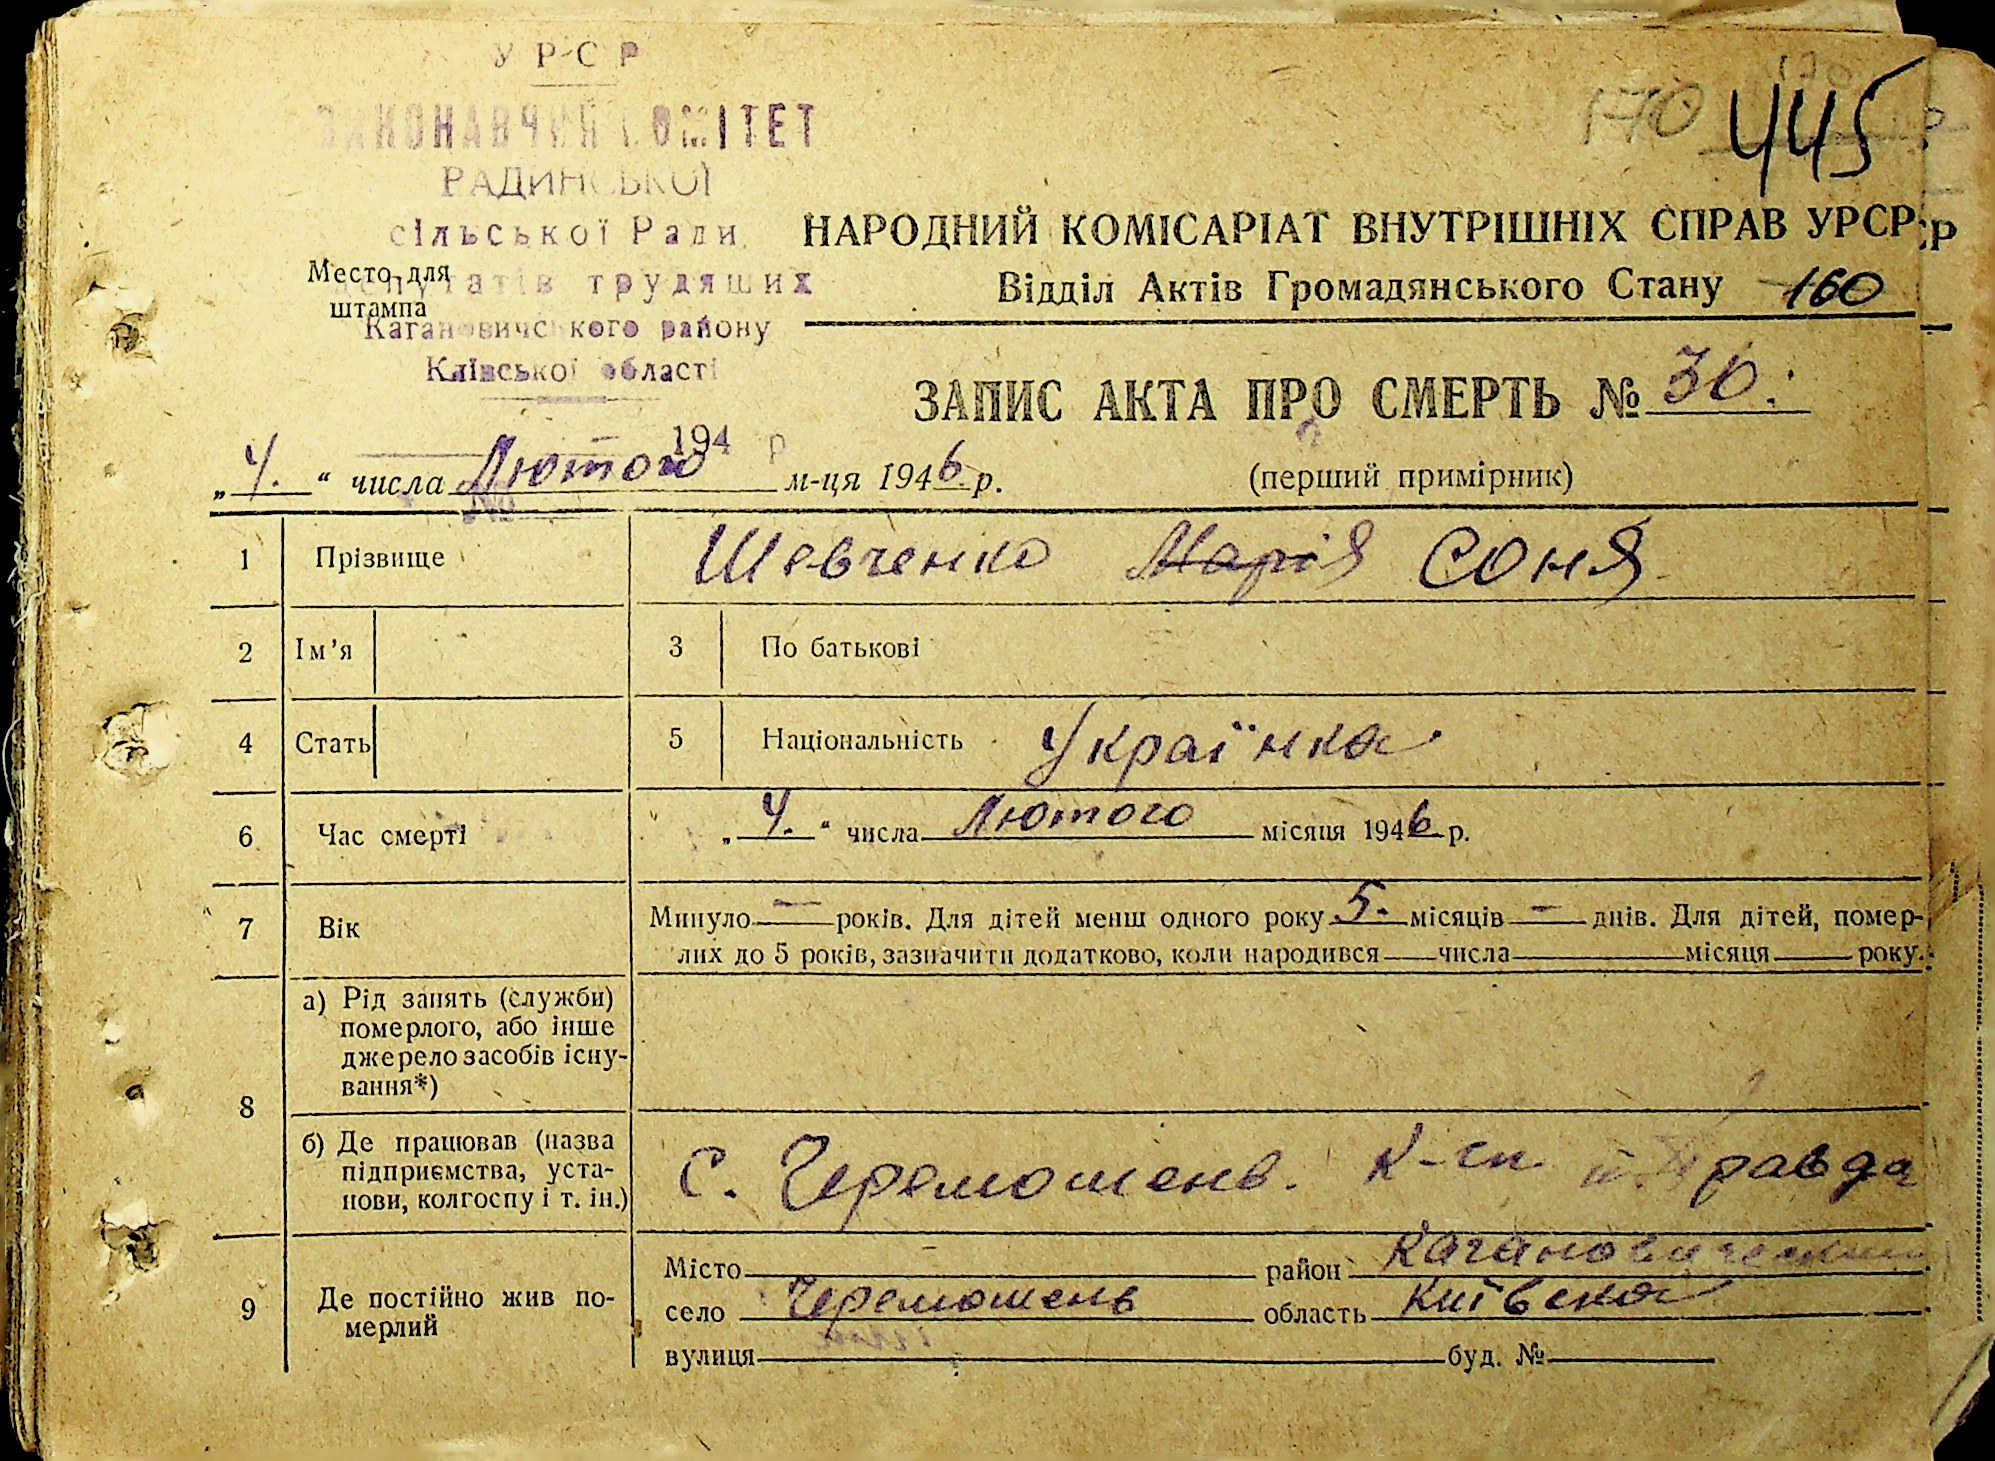 У Р С Р
ВИКОНАВЧИЙ КОМІТЕТ
РАДИНСЬКОЇ
сільської Ради
депутатів трудящих
Кагановичського району
Київської області
194 р
№
Место для
штампа
170
170
445
НАРОДНИЙ КОМІСАРІАТ ВНУТРІШНІХ СПРАВ УРСР
Відділ Актів Громадянського Стану 160
ЗАПИС АКТА ПРО СМЕРТЬ № 30.
„4.“ числа Лютого м-ця 1946 р.
(перший примірник)
1 Прізвище Шевченко Марія Соня
2 Ім’я 3 По батькові
4 Стать 5 Національність Українка
6 Час смерті „4.“ числа Лютого місяця 1946 р.
7 Вік Минуло — років. Для дітей менш одного року 5. місяців — днів. Для дітей, помер-
лих до 5 років, зазначити додатково, коли народився числа місяця року.
8 а) Рід занять (служби)
померлого, або інше
джерело засобів існу-
вання*)
б) Де працював (назва
підприємства, уста-
нови, колгоспу і т. ін.)
С. Черемошень. К-сп Правда
9 Де постійно жив по-
мерлий
Місто район Кагановический
село Черемошень область Київська
вулиця буд. №